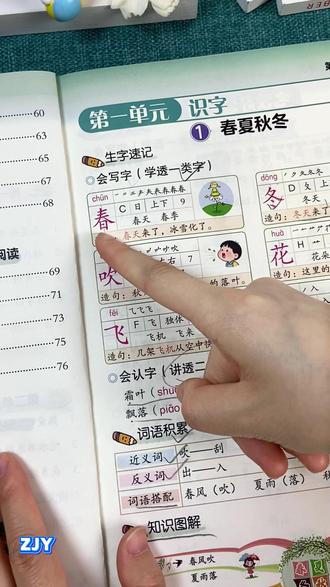 60
63
65
68
阅读
69
71
74
75
76
第一单元 识字
1 春夏秋冬
生字速记
会写字（学透一类字）
chūn
春
C 日 上下 9
春天 春季
春天来了，冰雪化了。
dōng
冬
冬天
造句：冬天来
吹
右 7
造句：
的落叶。
huā
花
花朵
造句：这里的
fēi
飞
F 飞 独体
飞机 飞来
造句：几架飞机从空中快
会认字（讲透二
霜叶（shu
飘落（piāo
词语积累
近义词 吹——刮
反义词 出——入
词语搭配 春风（吹） 夏雨（落）
知识图解
春风吹
夏雨落
春夏
ZJY